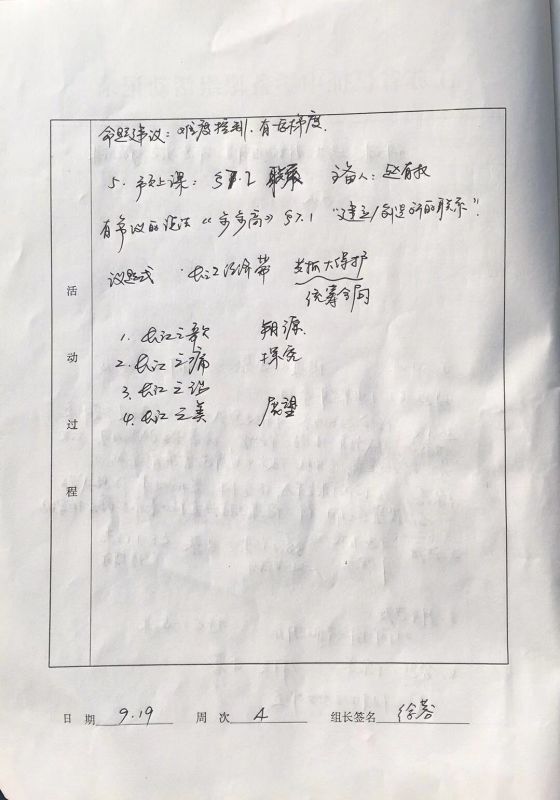 命题建议：难度控制，有一定梯度。
5. 市级上课：§7.2 联系 主备人：赵有权
有争议的说法《步步高》§7.1 "建立/创造新的联系".
议题式 长江经济带 共抓大保护
统筹全局
1. 长江之歌 溯源
2. 长江之痛 探究
3. 长江之治
4. 长江之美 展望
活动过程
日期 9.19 周次 4 组长签名 徐蓉